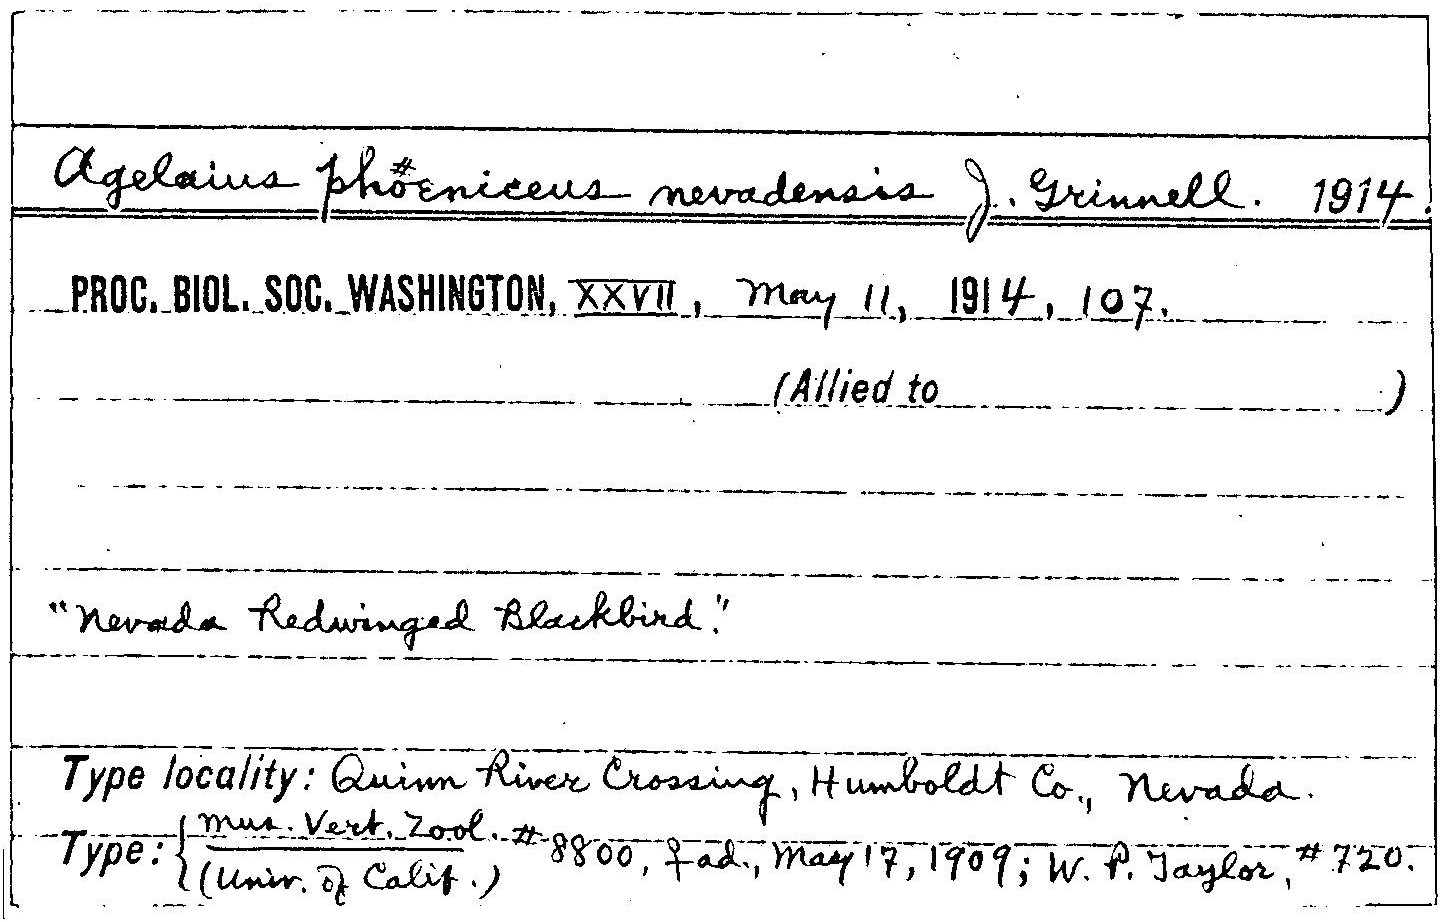 Agelaius phoeniceus nevadensis J. Grinnell. 1914.
PROC. BIOL. SOC. WASHINGTON, XXVII, May 11, 1914, 107.
(Allied to )
"Nevada Redwinged Blackbird."
Type locality: Quinn River Crossing, Humboldt Co., Nevada.
Type: { Mus. Vert. Zool. (Univ. of Calif.) #8800, ♀ ad., May 17, 1909; W. P. Taylor, #720.